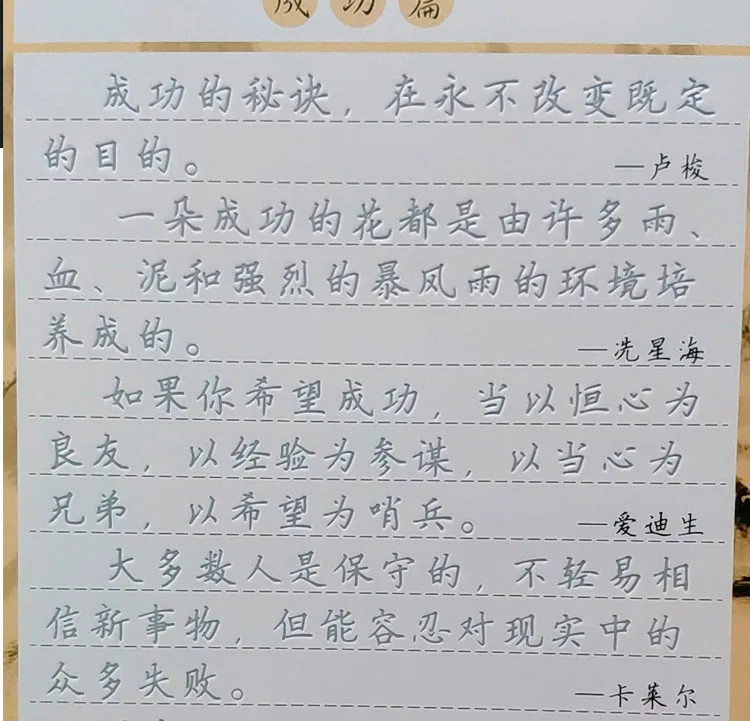 成功篇
成功的秘诀，在永不改变既定
的目的。
—卢梭
一朵成功的花都是由许多雨、
血、泥和强烈的暴风雨的环境培
养成的。
—冼星海
如果你希望成功，当以恒心为
良友，以经验为参谋，以当心为
兄弟，以希望为哨兵。
—爱迪生
大多数人是保守的，不轻易相
信新事物，但能容忍对现实中的
众多失败。
—卡莱尔